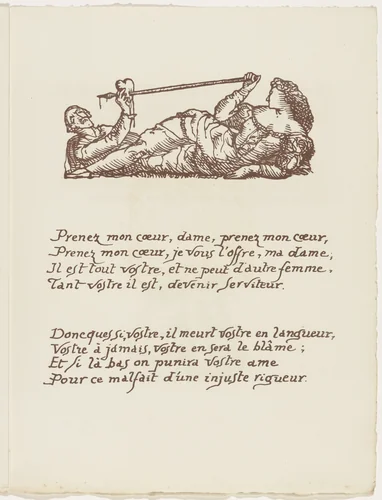 Prenez mon cœur, dame, prenez mon cœur,
Prenez mon cœur, je vous l'offre, ma dame,
Il est tout vostre, et ne peut d'autre femme,
Tant vostre il est, devenir serviteur.
Doncques si, vostre, il meurt vostre en langueur,
Vostre à jamais, vostre en sera le blâme;
Et si là bas on punira vostre ame
Pour ce malfait d'une injuste rigueur.